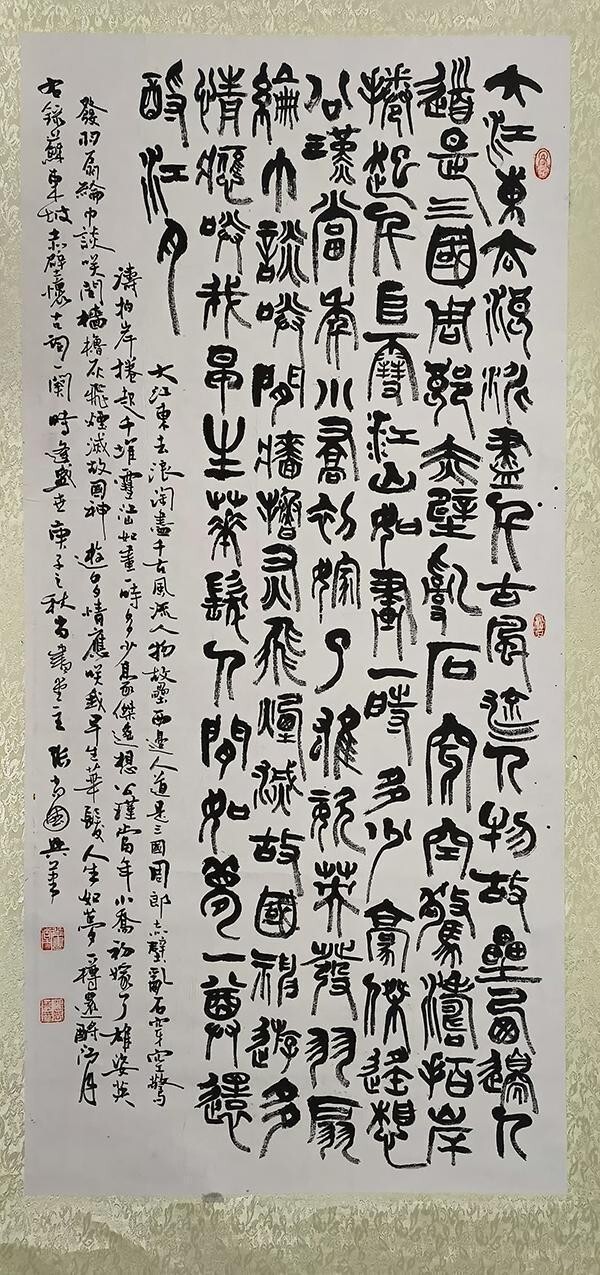 大江東去浪淘盡千古風流人物故壘西邊人
道是三國周郎赤壁亂石穿空驚濤拍岸
捲起千堆雪江山如畫一時多少豪傑遙想
公瑾當年小喬初嫁了雄姿英發羽扇
綸巾談笑間檣櫓灰飛煙滅故國神遊多
情應笑我早生華髮人間如夢一尊還
酹江月
大江東去浪淘盡千古風流人物故壘西邊人道是三國周郎赤壁亂石穿空驚
濤拍岸捲起千堆雪江山如畫一時多少豪傑遙想公瑾當年小喬初嫁了雄姿英
發羽扇綸巾談咲間檣櫓灰飛煙滅故國神遊多情應咲我早生華髮人生如夢一樽還酹江月
右錄蘇東坡赤壁懷古詞一闋時逢盛世庚子之秋尚書堂主張尚國興筆